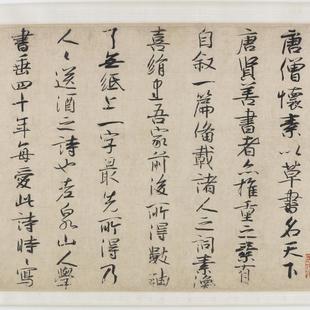 唐僧懷素以草書名天下
唐賢善書者亦推重之
自叙一篇備載諸人之詞素
喜絹書吾家前後所得數軸
了無紙上一字最先所得乃
人人送酒之詩也老泉山人學
書垂四十年每愛此詩時時寫